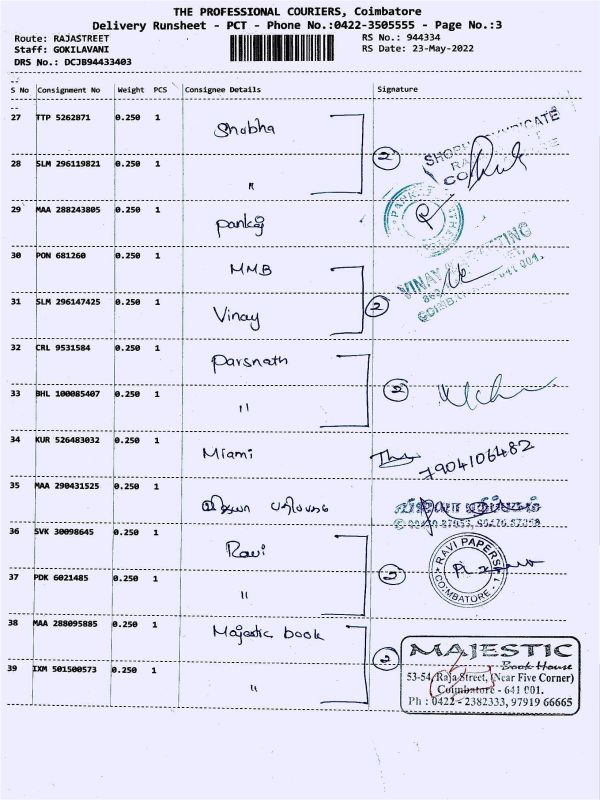 THE PROFESSIONAL COURIERS, Coimbatore
Delivery Runsheet - PCT - Phone No.:0422-3505555 - Page No.:3
Route: RAJASTREET
RS No.: 944334
Staff: GOKILAVANI
RS Date: 23-May-2022
DRS No.: DCJB94433403
S No Consignment No Weight PCS Consignee Details Signature
27 TTP 5262871 0.250 1 Shobha
28 SLM 296119821 0.250 1 "
2
29 MAA 288243805 0.250 1 pankaj
30 PON 681260 0.250 1 M.M.B
31 SLM 296147425 0.250 1 Vinay
2
VINAY MARKETING
32 CRL 9531584 0.250 1 Parsnath
33 BHL 100085407 0.250 1 "
2
34 KUR 526483032 0.250 1 Miami
7904106482
35 MAA 290431525 0.250 1
36 SVK 30098645 0.250 1 Ravi
37 PDK 6021485 0.250 1 "
2
RAVI PAPERS
COIMBATORE - 1
38 MAA 288095885 0.250 1 Majestic book
39 IXM 501500573 0.250 1 "
2
MAJESTIC
Book House
53-54, Raja Street, (Near Five Corner)
Coimbatore - 641 001.
Ph : 0422 - 2382333, 97919 66665